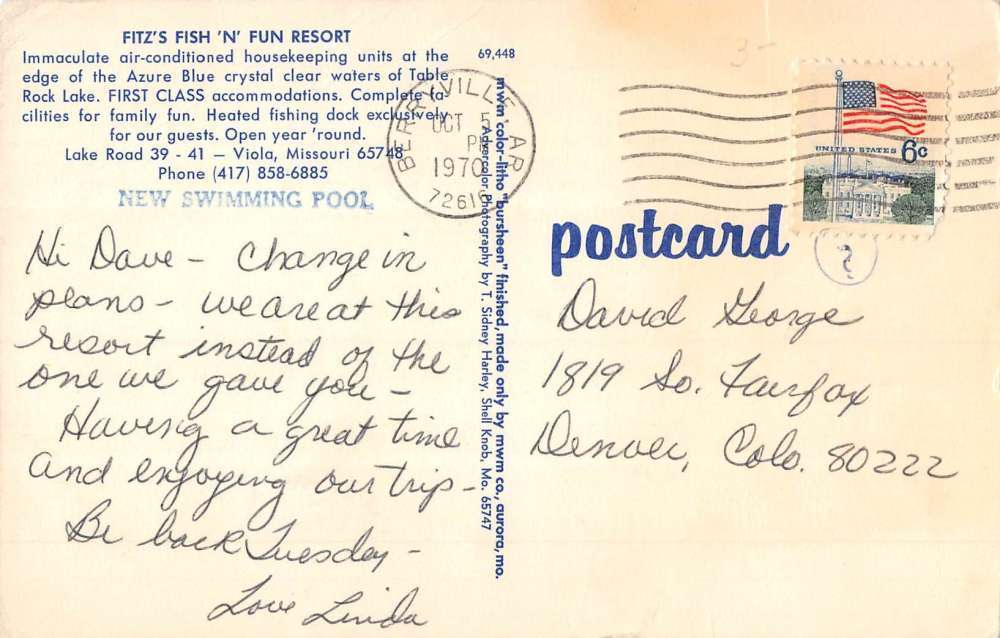 FITZ'S FISH 'N' FUN RESORT
Immaculate air-conditioned housekeeping units at the
edge of the Azure Blue crystal clear waters of Table
Rock Lake. FIRST CLASS accommodations. Complete fa-
cilities for family fun. Heated fishing dock exclusively
for our guests. Open year 'round.
Lake Road 39 - 41 — Viola, Missouri 65748
Phone (417) 858-6885
NEW SWIMMING POOL
69,448
BERRYVILLE, AR
OCT 5
PM
1970
72616
Hi Dave - Change in
plans - we are at this
resort instead of the
one we gave you -
Having a great time
and enjoying our trip -
Be back Tuesday -
Love Linda
mwm color-litho "bursheen" finished, made only by mwm co., aurora, mo.
Advercolor Photography by T. Sidney Harley, Shell Knob, Mo. 65747
3-
UNITED STATES 6c
postcard
David George
1819 So. Fairfax
Denver, Colo. 80222